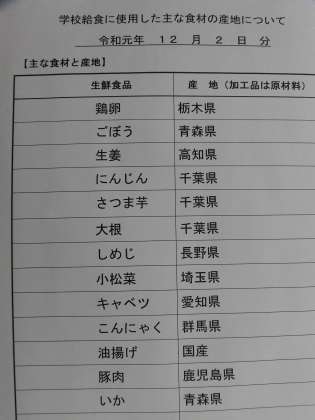 学校給食に使用した主な食材の産地について
令和元年 12 月 2 日 分
【主な食材と産地】
生鮮食品 産 地（加工品は原材料）
鶏卵 栃木県
ごぼう 青森県
生姜 高知県
にんじん 千葉県
さつま芋 千葉県
大根 千葉県
しめじ 長野県
小松菜 埼玉県
キャベツ 愛知県
こんにゃく 群馬県
油揚げ 国産
豚肉 鹿児島県
いか 青森県